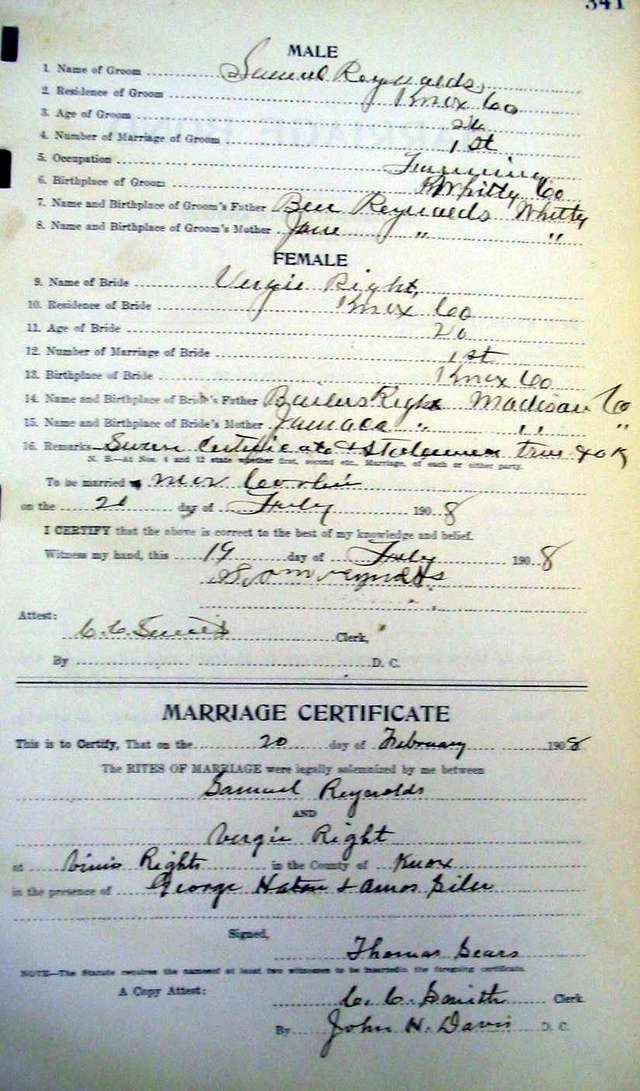 341
MALE
1. Name of Groom Samuel Reynolds,
2. Residence of Groom Knox Co
3. Age of Groom 26
4. Number of Marriage of Groom 1st
5. Occupation Farming
6. Birthplace of Groom Whitly Co
7. Name and Birthplace of Groom's Father Ben Reynolds Whitly
8. Name and Birthplace of Groom's Mother Jane " "
FEMALE
9. Name of Bride Vergie Right,
10. Residence of Bride Knox Co
11. Age of Bride 20
12. Number of Marriage of Bride 1st
13. Birthplace of Bride Knox Co
14. Name and Birthplace of Bride's Father Right Madison Co
15. Name and Birthplace of Bride's Mother " " "
16. Remarks Sworn Certificate & true & OK
N. B.—At Nos. 4 and 12 state whether first, second etc., Marriage, of each or either party.
To be married
on the 20 day of Feby 1908
I CERTIFY that the above is correct to the best of my knowledge and belief.
Witness my hand, this 19 day of Feby 1908
Sam reynolds
Attest:
C. C. Smith Clerk,
By D. C.
MARRIAGE CERTIFICATE
This is to Certify, That on the 20 day of February 1908
The RITES OF MARRIAGE were legally solemnized by me between
Samuel Reynolds
AND
Vergie Right
at Rights in the County of Knox
in the presence of George Haton & Amos Siler
Signed,
Thomas Sears
NOTE—The Statute requires the names of at least two witnesses to be inserted in the foregoing certificate.
A Copy Attest: C. C. Smith Clerk
By John H. Davis D. C.